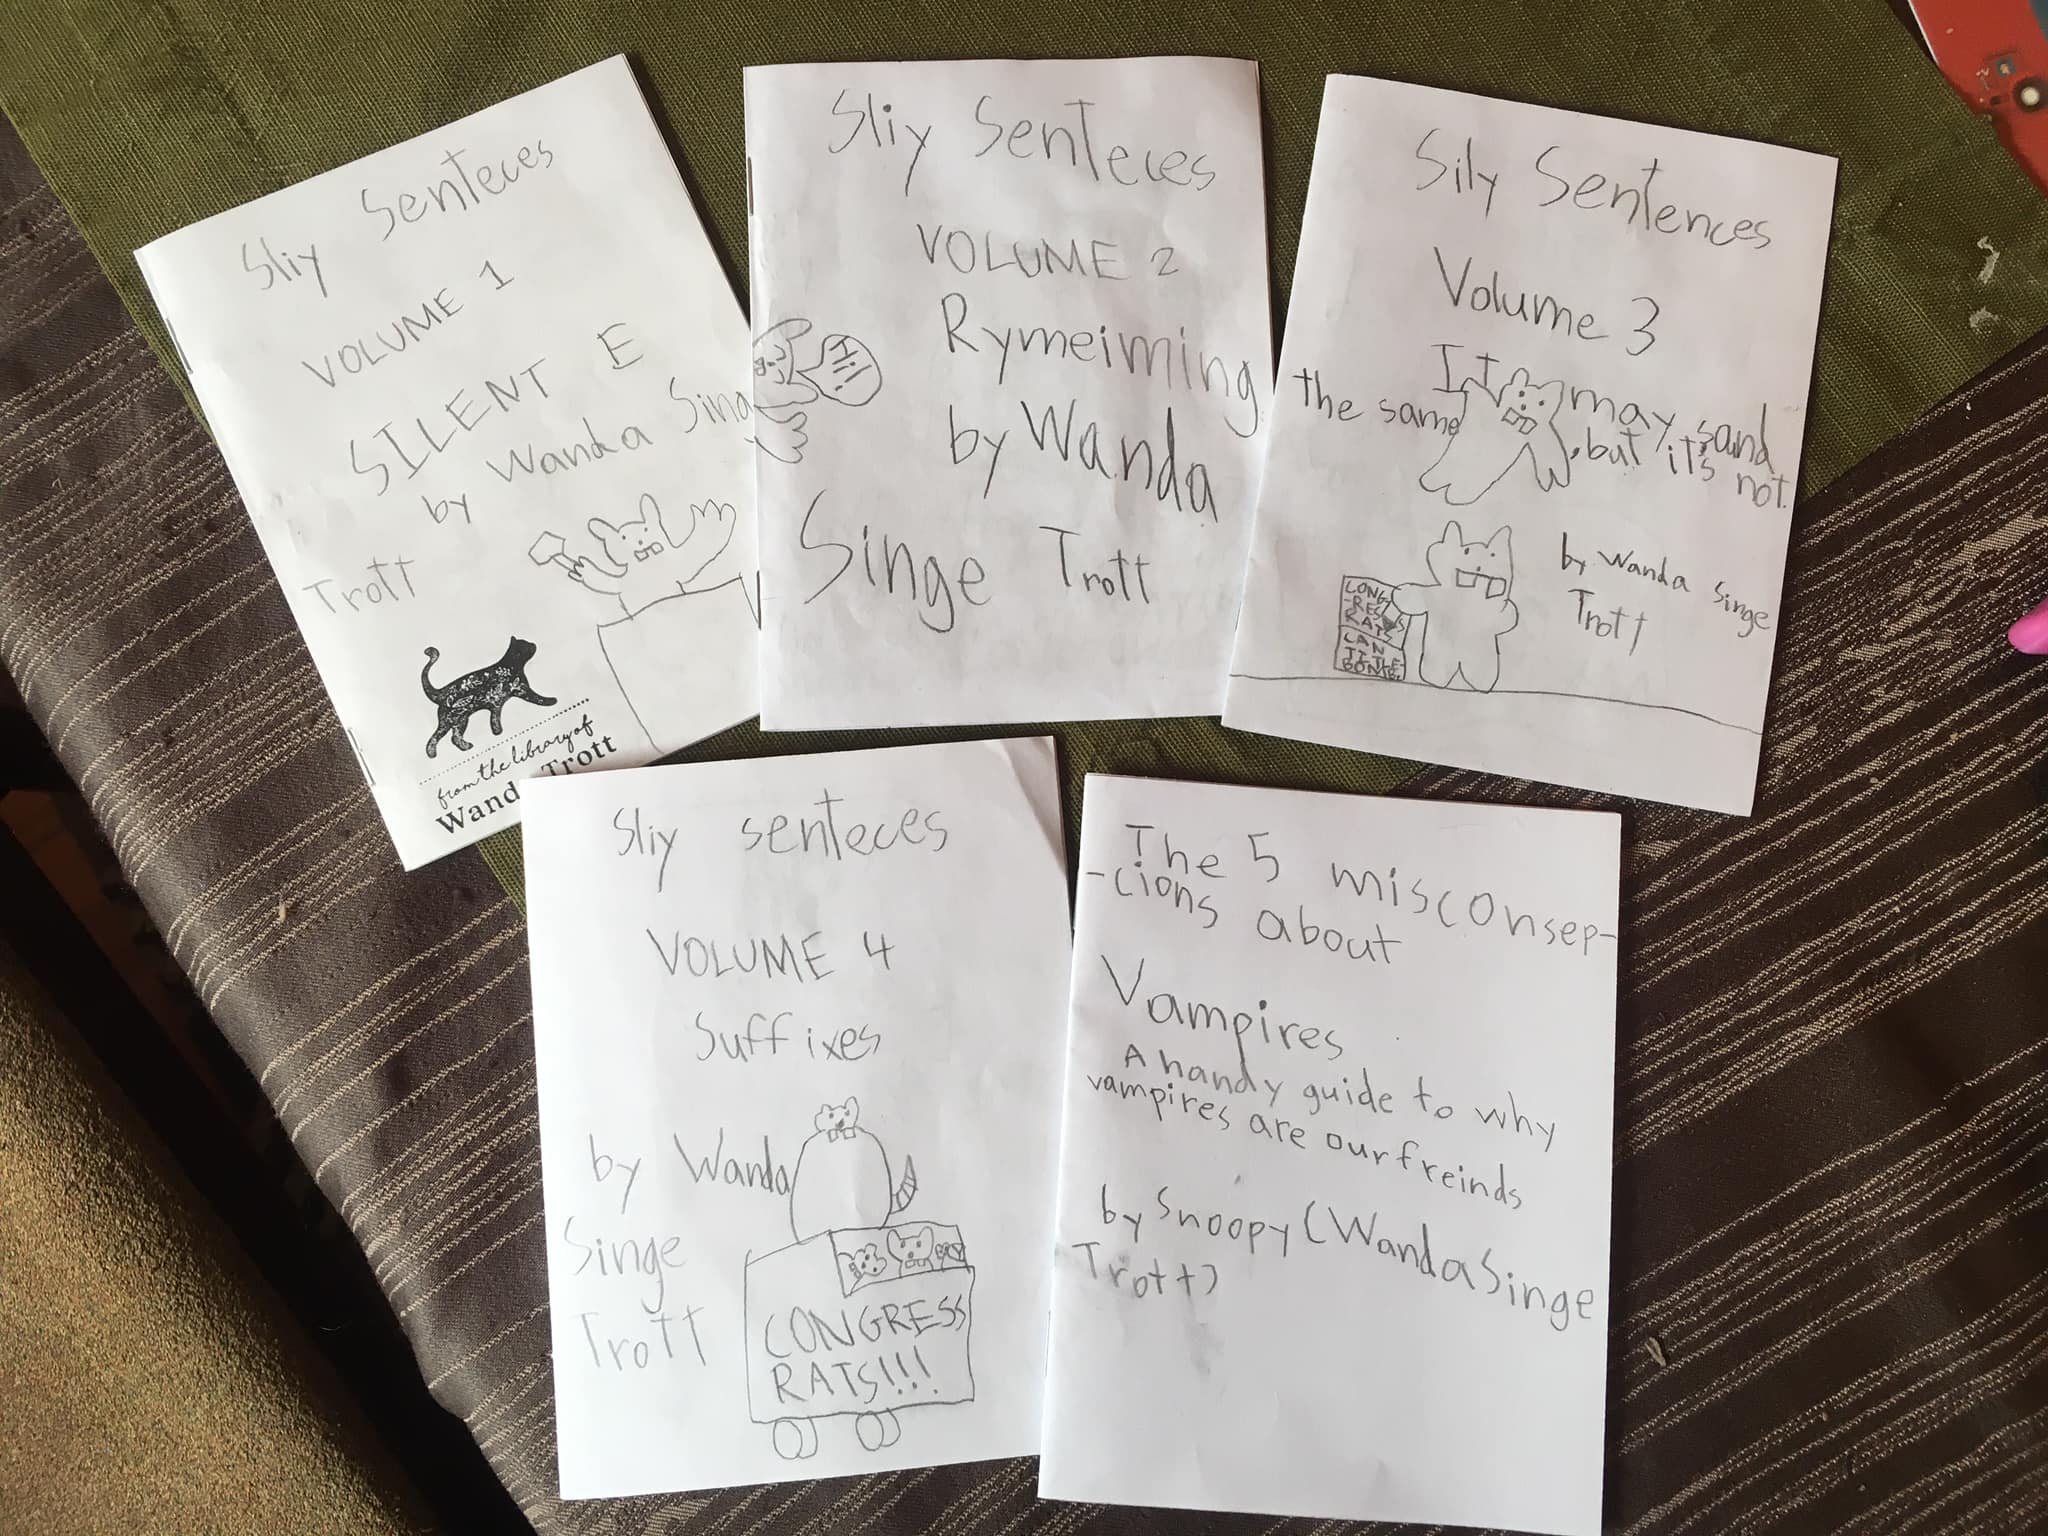 Sliy Senteces
VOLUME 1
SILENT E
by Wanda Sing
Trott
from the library of
Wand Trott
Sliy Senteces
VOLUME 2
Rymeiming
by Wanda
Singe Trott
Hi!
Sily Sentences
Volume 3
It may sound
the same, but it's not.
by Wanda Singe
Trott
CONG-
-RESS
RATS
CAN
IT THE
Sliy senteces
VOLUME 4
Suffixes
by Wanda
Singe
Trott
CONGRESS
RATS!!!
The 5 misconsep-
-cions about
Vampires
A handy guide to why
vampires are our freinds
by Snoopy (Wanda Singe
Trott)